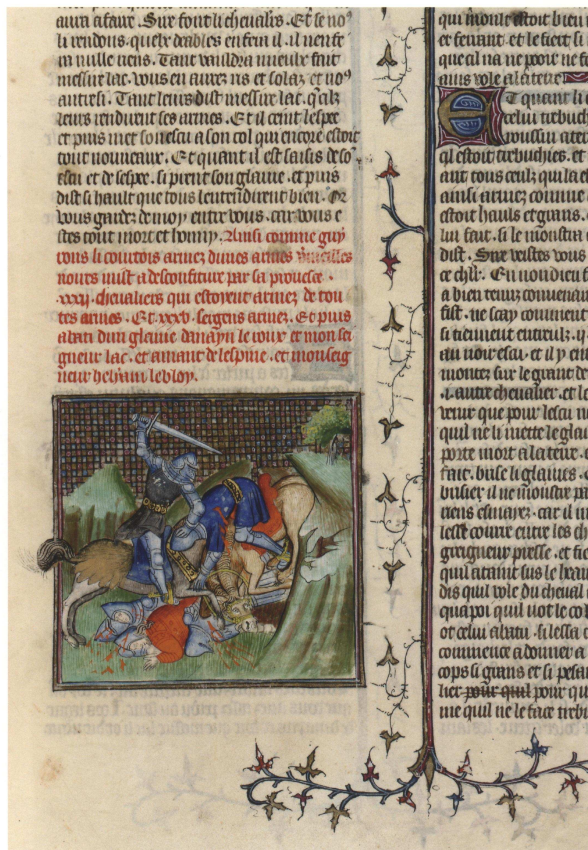 aura afaire. Sire font li cheualier. Et se noꝰ
li rendons. quelx deables en fera il. il nen fe
ra mille riens. Tant vauldra mieulx fait
messire lac. vous en aurez ris et solaz et noꝰ
autresi. Tant leurs dist messire lac. qlz
leurs rendirent ses armes. Et il ceint lespee
et puis met son escu a son col qui encore estoit
tout nouueaux. Et quant il est saisis de so
escu et de lespee. si prent son glaiue. et puis
dist si hault que tous lentendirent bien. Or
vous gardez de moy entre vous. car vous e
stes tout mort et honny. Ainsi comme guy
rons li courtois armez dunes armes
noires mist a desconfiture par sa prouesce
.xxij. cheualiers qui estoyent armez de tou
tes armes. Et .xxxv. sergens armez. Et puis
abati dun glaiue danayn le roux et mon sei
gneur lac. et amant de lespine. et monseig
neur helyam le bloy.
qui moult estoit bien
et ferrant. et le fiert si
que cil na ne pooir ne fo
auis vole a la terre
Et quant li
celui trebuch
roussin a ter
ql estoit trebuchies. et
ant tous ceulx qui la e
ainsi armez comme
estoit haulx et grans.
lui fait. si le monstra
dist. Sire veistes vous
ce chlr. En non dieu f
a bien tenuz conuenan
fist. ne scay comment
si tiennent entreulx. q
au noir escu. et il y en
montez sur le grant de
.i. autre cheualier. et le
venir que pour lescu n
quil ne li mette le glai
porte mort a la terre.
fait. brise li glaiues.
brisier il ne monstre p
riens esmaiez. car il
lesse courre entre les ch
greigneur presse. et fie
quil ataint sus le heau
dis quil vole du cheual
qua poi quil not le col
ot celui abatu. si lessa
commence a donner a
cops si grans et si pesan
lier pour quil pour qu
me quil ne le face treb